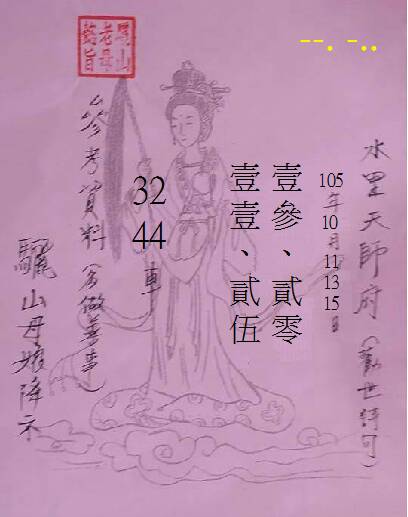 水里天師府(勸世詩句)
105
年10月11日
13
15
壹參、貳零
壹壹、貳伍
32
44
車
參考資料(多做善事)
驪山母娘降示
驪山
老母
懿旨
--. -..